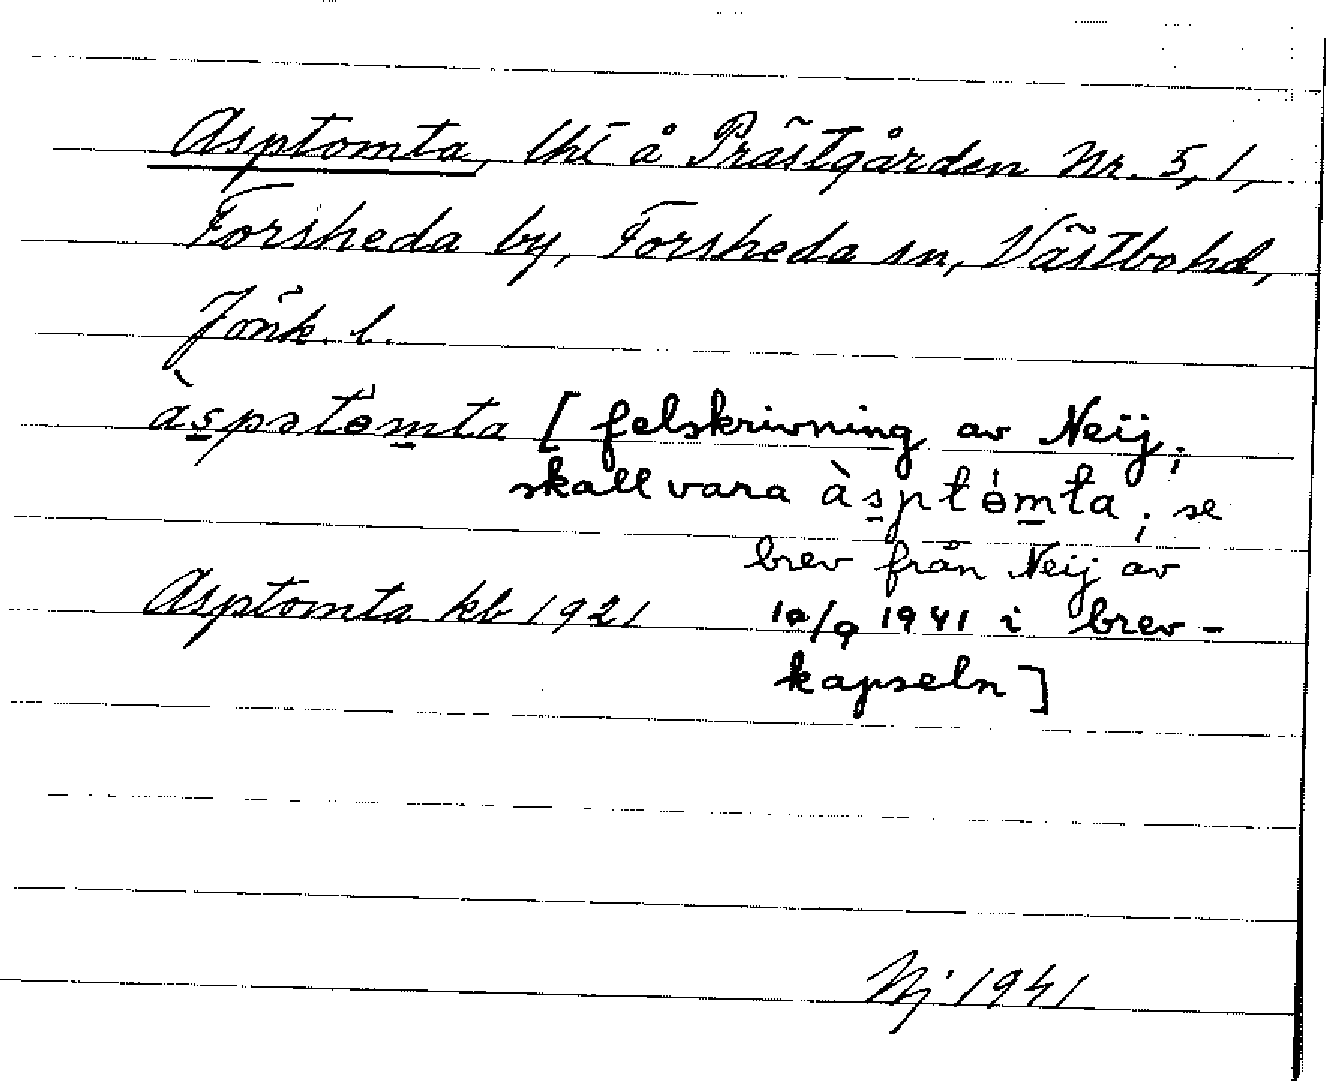 Asptomta, lht å Prästgården Nr. 5,1,
Forsheda by, Forsheda sn, Västbo hd,
Jönk. l.
àspstómta [felskrivning av Neij;
skall vara àsptómta; se
brev från Neij av
Asptomta kb 1921 10/9 1941 i brev-
kapseln]
Nj 1941